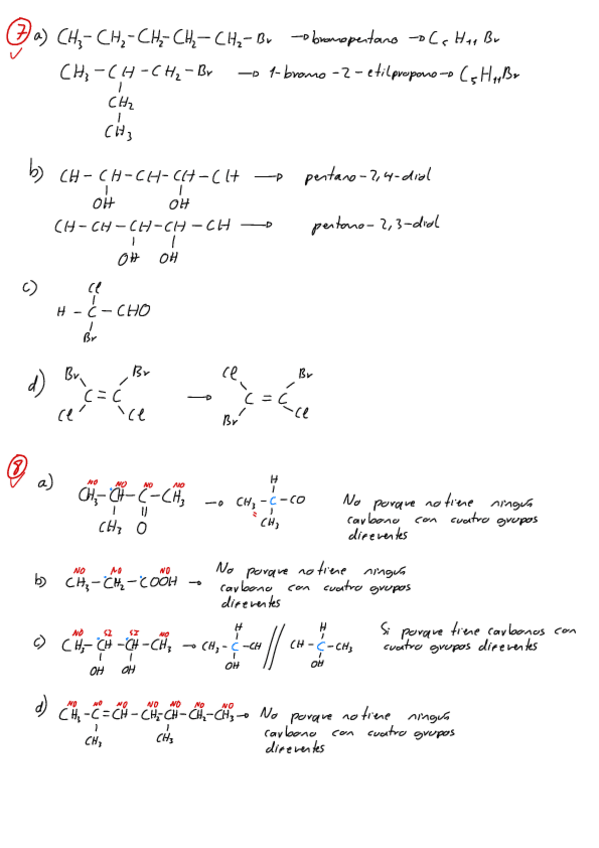 7 a) CH3-CH2-CH2-CH2-CH2-Br → bromopentano → C5H11Br
CH3-CH-CH2-Br → 1-bromo-2-etilpropano → C5H11Br
CH2
CH3
b) CH-CH-CH-CH-CH → pentano-2,4-diol
OH OH
CH-CH-CH-CH-CH → pentano-2,3-diol
OH OH
c) Cl
H-C-CHO
Br
d) Br Br → Cl Br
C=C C=C
Cl Cl Br Cl
8 a) NO NO NO NO
CH3-CH-C-CH3 → CH3-C-CO No porque no tiene ningún
H
CH3 O CH3 carbono con cuatro grupos
diferentes
b) NO NO NO
CH3-CH2-COOH → No porque no tiene ningún
carbono con cuatro grupos
diferentes
c) NO SI SI NO H H Si porque tiene carbonos con
CH3-CH-CH-CH3 → CH3-C-CH // CH-C-CH3 cuatro grupos diferentes
OH OH OH OH
d) NO NO NO NO NO NO NO
CH3-C=CH-CH2-CH-CH2-CH3 → No porque no tiene ningún
CH3 CH3 carbono con cuatro grupos
diferentes